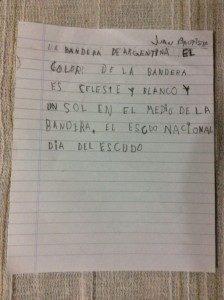 Juan Bautista
LA BANDERA DE ARGENTINA EL
COLORO DE LA BANDERA
ES CELESTE Y BLANCO Y
UN SOL EN EL MEDIO DE LA
BANDIRA. EL ESCDO NACIONAL
DIA DEL ESCUDO